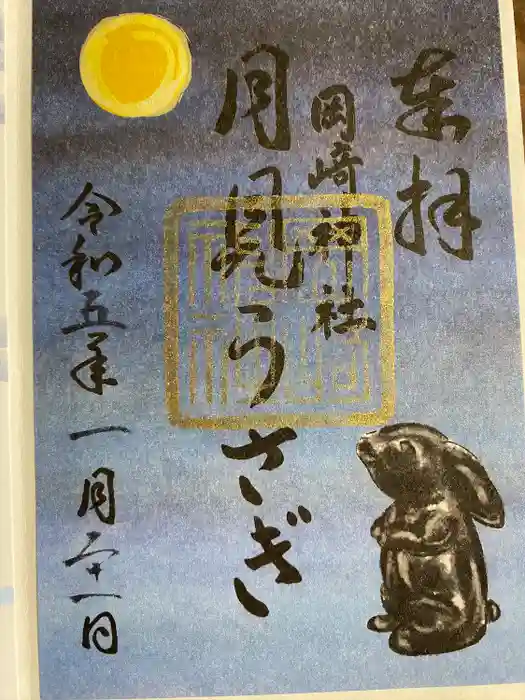 奉拝
岡崎神社
月見うさぎ
令和五年一月二十一日